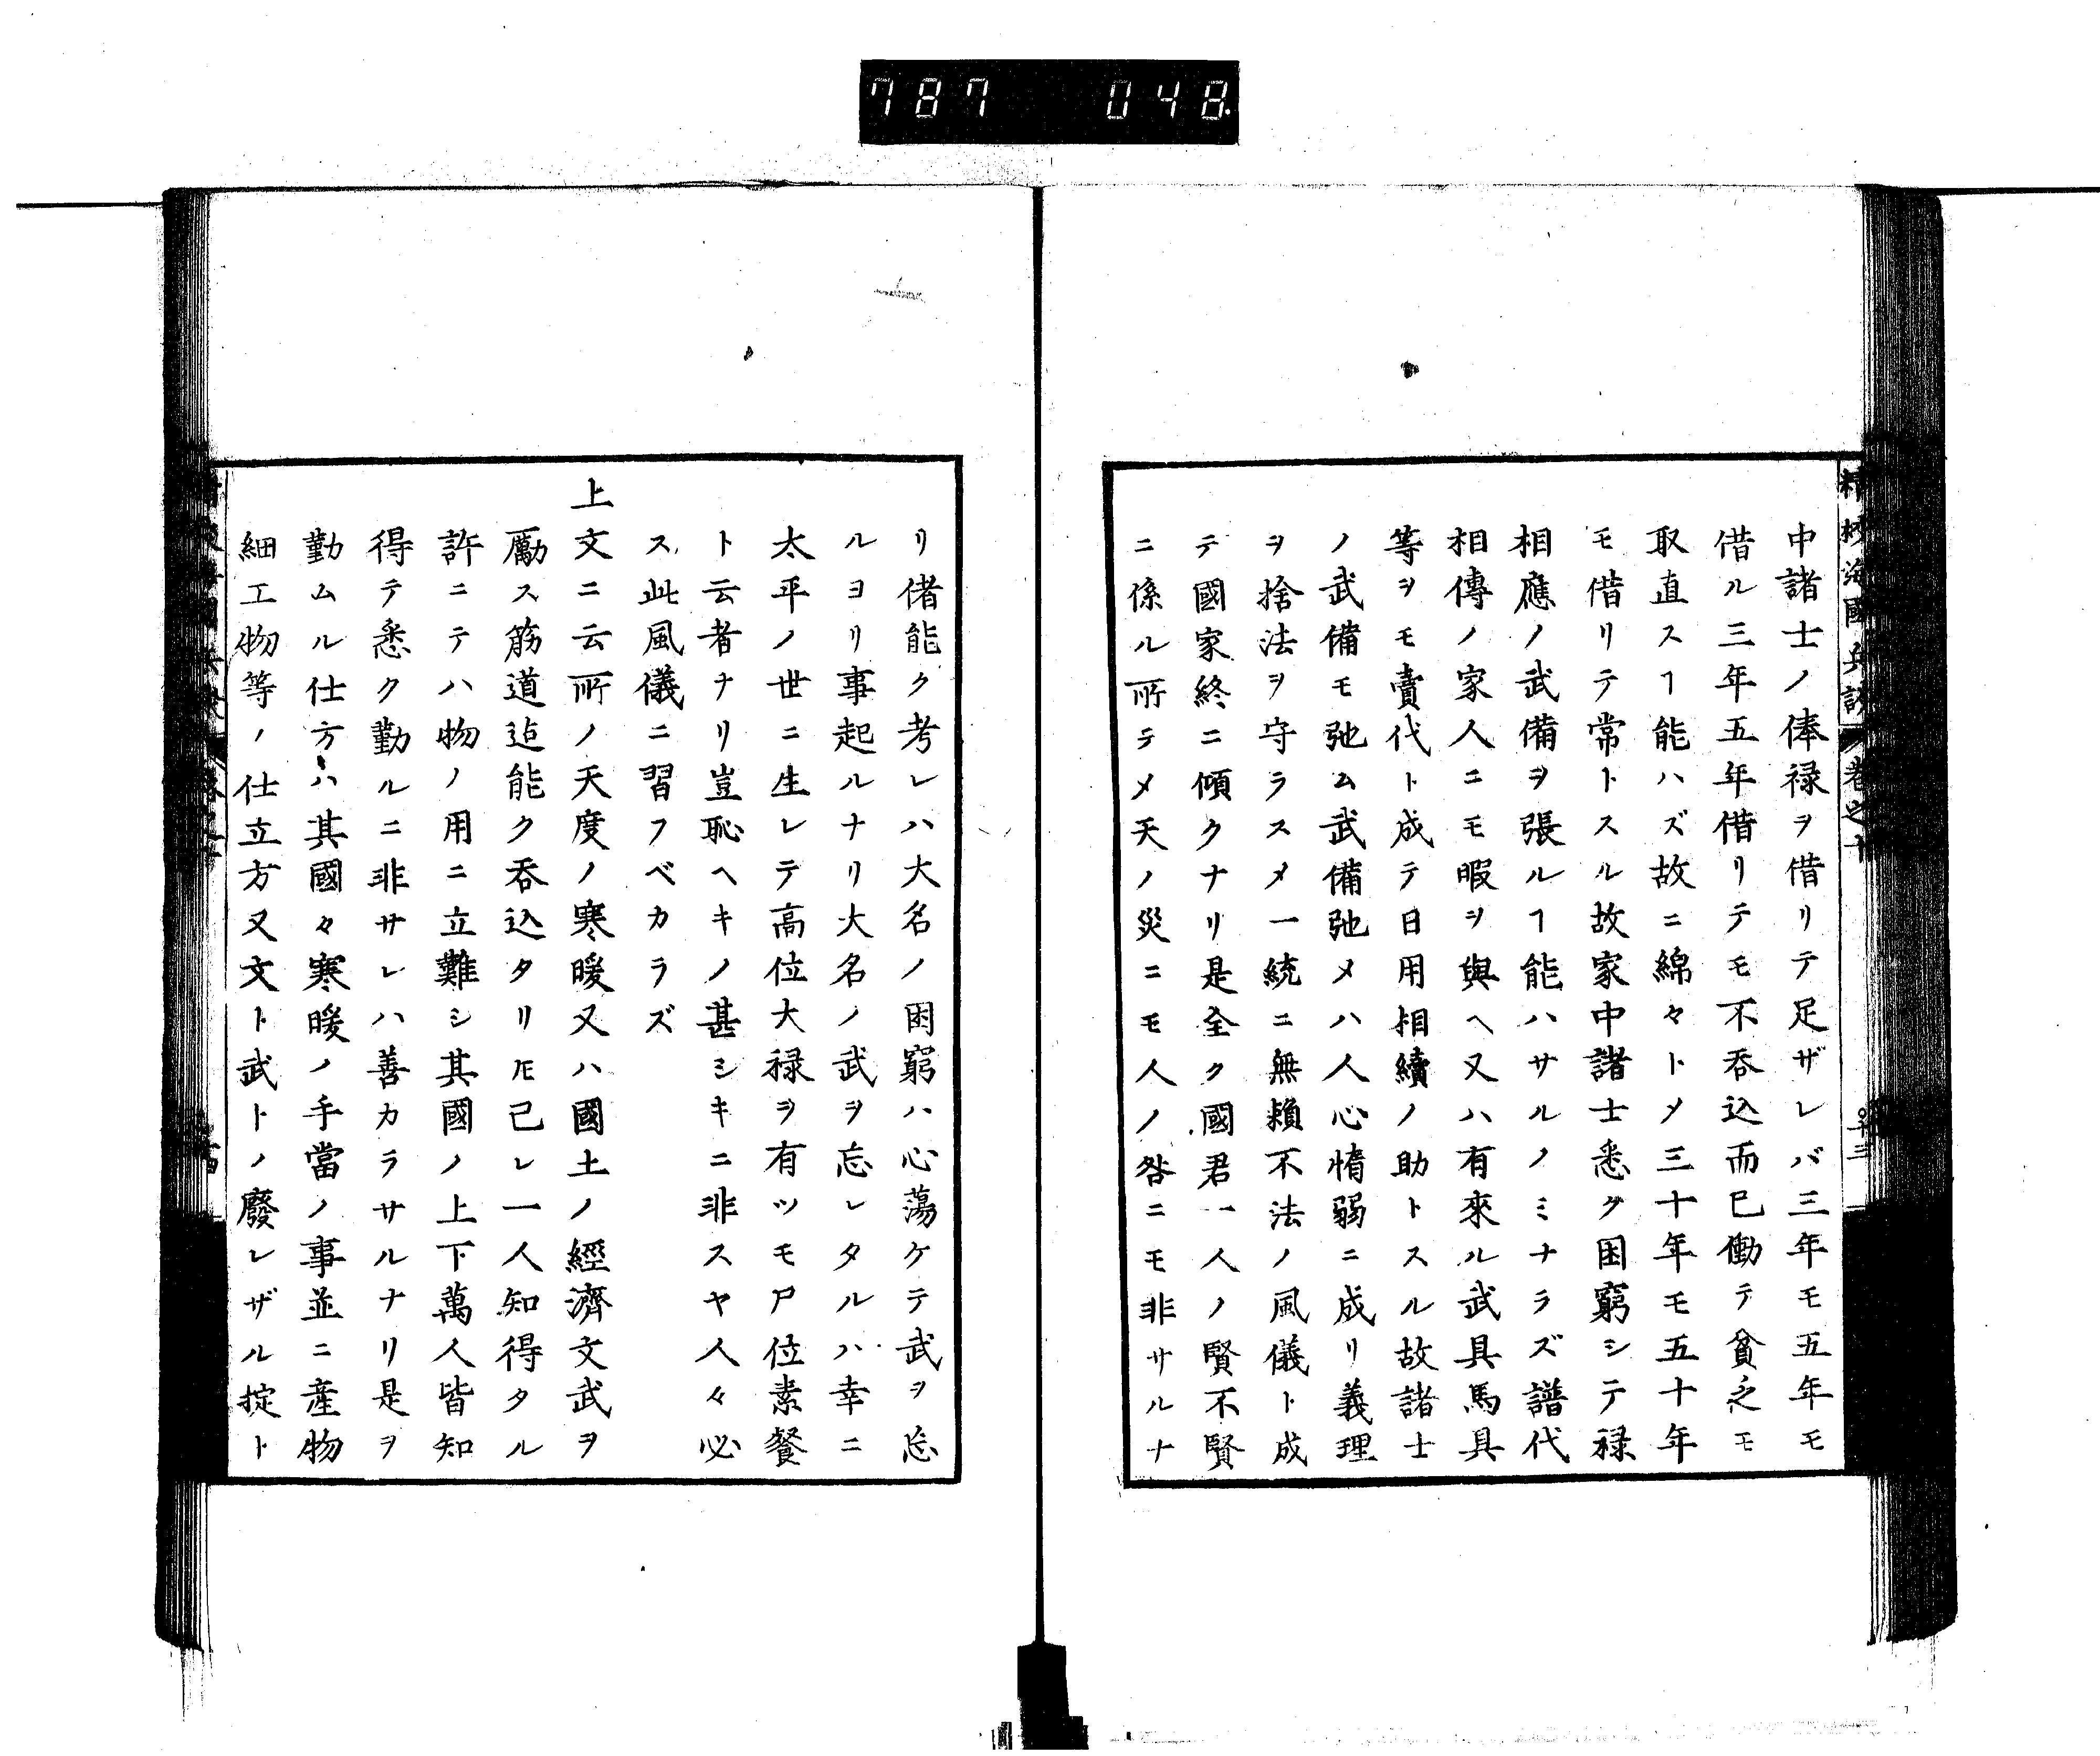 787 048
精校海國兵談 卷之十
中諸士ノ俸禄ヲ借リテ足ザレバ三年モ五年モ
借ル三年五年借リテモ不呑込而已働テ貧乏モ
取直スヿ能ハズ故ニ綿々トメ三十年モ五十年
モ借リテ常トスル故家中諸士悉グ困窮シテ禄
相應ノ武備ヲ張ルヿ能ハサルノミナラズ譜代
相傳ノ家人ニモ暇ヲ與ヘ又ハ有來ル武具馬具
等ヲモ賣代ト成テ日用相續ノ助トスル故諸士
ノ武備モ弛ム武備弛メハ人心惰弱ニ成リ義理
ヲ捨法ヲ守ラスメ一統ニ無頼不法ノ風儀ト成
テ國家終ニ傾クナリ是全ク國君一人ノ賢不賢
ニ係ル所テメ天ノ災ニモ人ノ咎ニモ非サルナ
リ偖能ク考レハ大名ノ困窮ハ心蕩ケテ武ヲ忘
ルヨリ事起ルナリ大名ノ武ヲ忘レタルハ幸ニ
太平ノ世ニ生レテ高位大禄ヲ有ツモ尸位素餐
ト云者ナリ豈恥ヘキノ甚シキニ非スヤ人々必
ス此風儀ニ習フベカラズ
上文ニ云所ノ天度ノ寒暖又ハ國土ノ經濟文武ヲ
勵ス筋道迠能ク呑込タリ𪜈己レ一人知得タル
許ニテハ物ノ用ニ立難シ其國ノ上下萬人皆知
得テ悉ク勤ルニ非サレハ善カラサルナリ是ヲ
勤ムル仕方ハ其國々寒暖ノ手當ノ事並ニ産物
細工物等ノ仕立方又文ト武トノ廢レザル掟ト